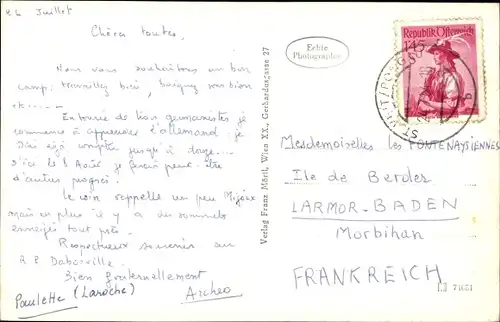 26 Juillet
Chères toutes,
Nous vous souhaitons un bon
camp: travaillez bien, baignez vous bien
etc.....
Entourée de bien germanistes je
commence à apprendre l'allemand: je
sais déjà compter jusqu'à douze....
d'ici le 1 Août je ferai peut être
d'autres progrès.
Le coin rappelle un peu Mijoux
mais en plus il y a des sommets
enneigés tout près.
Respectueux souvenir au
R P Dabosville.
Bien fraternellement
Paulette (Laroche) Archeo
Echte
Photographie
Verlag Franz Mörtl, Wien XX, Gerhardusgasse 27
Republik Österreich
1.45
Mesdemoiselles les FONTENAYSIENNES
Ile de Berder
LARMOR-BADEN
Morbihan
FRANKREICH